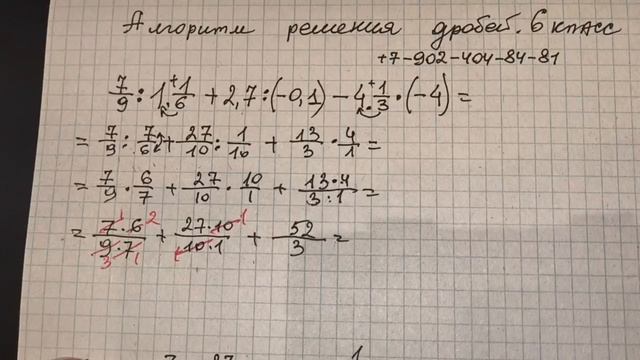 Алгоритм решения дробей. 6 класс
+7-902-404-84-81
7/9 : 1 1/6 + 2,7 : (-0,1) - 4 1/3 · (-4) =
= 7/9 : 7/6 + 27/10 : 1/10 + 13/3 · 4/1 =
= 7/9 · 6/7 + 27/10 · 10/1 + 13·4/3:1 =
= 7·6/9·7 + 27·10/10·1 + 52/3 =